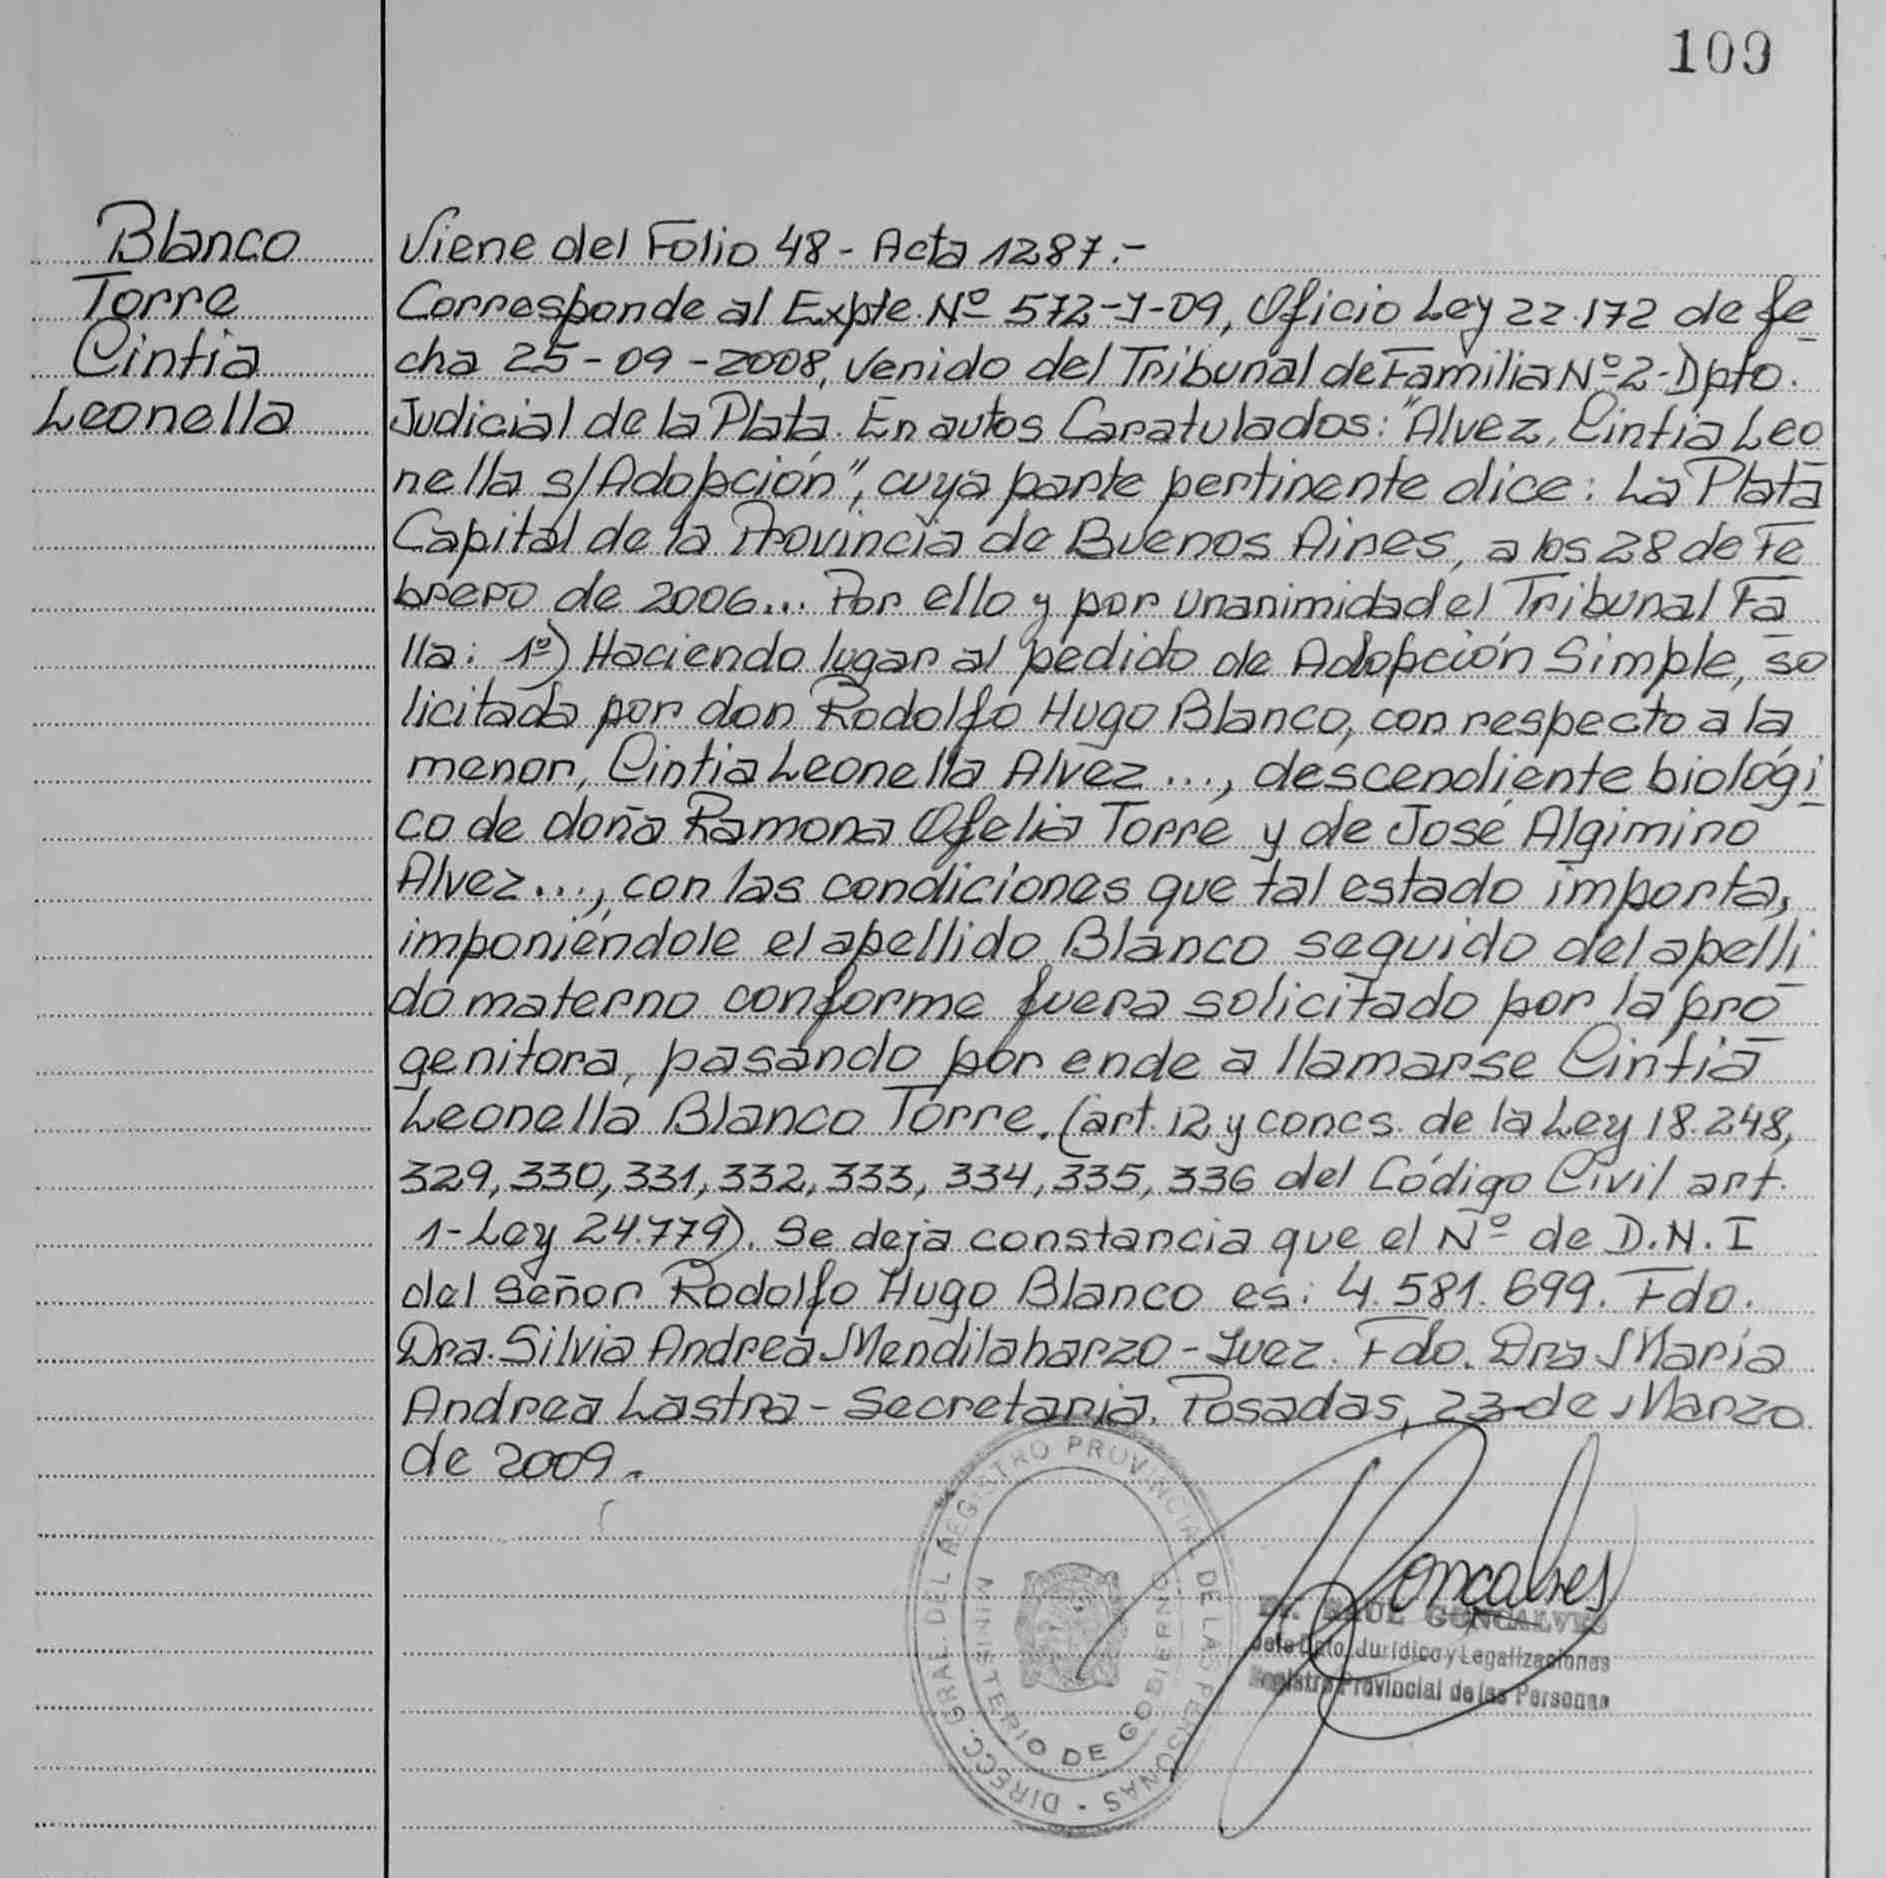 109
Blanco
Torre
Cintia
Leonella
Viene del Folio 48 - Acta 1287.-
Corresponde al Expte. Nº 572-J-09, Oficio Ley 22.172 de fe
cha 25-09-2008, venido del Tribunal de Familia Nº 2-Dpto.
Judicial de la Plata. En autos Caratulados: "Alvez, Cintia Leo
nella s/Adopción", cuya parte pertinente dice: La Plata
Capital de la Provincia de Buenos Aires, a los 28 de Fe
brero de 2006... Por ello y por unanimidad el Tribunal Fa
lla: 1º) Haciendo lugar al pedido de Adopción Simple, so
licitada por don Rodolfo Hugo Blanco, con respecto a la
menor, Cintia Leonella Alvez ..., descendiente biológi
co de doña Ramona Ofelia Torre y de José Algimiro
Alvez..., con las condiciones que tal estado importa,
imponiéndole el apellido Blanco seguido del apelli
do materno conforme fuera solicitado por la pro
genitora, pasando por ende a llamarse Cintia
Leonella Blanco Torre. (art. 12 y concs. de la Ley 18.248,
329, 330, 331, 332, 333, 334, 335, 336 del Código Civil art.
1-Ley 24.779). Se deja constancia que el Nº de D.N.I
del Señor Rodolfo Hugo Blanco es: 4.581.699. Fdo.
Dra. Silvia Andrea Mendilaharzo - Juez. Fdo. Dra María
Andrea Lastra - Secretaria. Posadas, 23 de Marzo
de 2009.
DIRECC. GRAL DEL REGISTRO PROVINCIAL DE LAS PERSONAS -
MINISTERIO DE GOBIERNO
Goncalves
RAUL GONCALVES
Jefe Dpto. Jurídico y Legalizaciones
Registro Provincial de las Personas